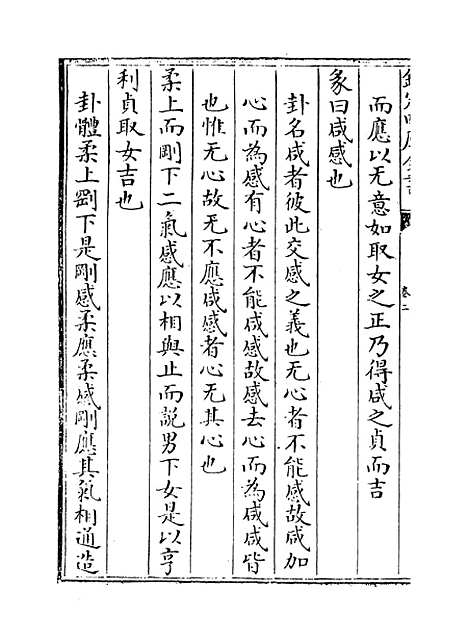 欽定四庫全書
卷二
而應以无意如取女之正乃得咸之貞而吉
彖曰咸感也
卦名咸者彼此交感之義也无心者不能感故咸加
心而為感有心者不能咸感故感去心而為咸咸皆
也惟无心故无不應咸感者心无其心也
柔上而剛下二氣感應以相與止而說男下女是以亨
利貞取女吉也
卦體柔上剛下是剛感柔應柔感剛應其氣相通造